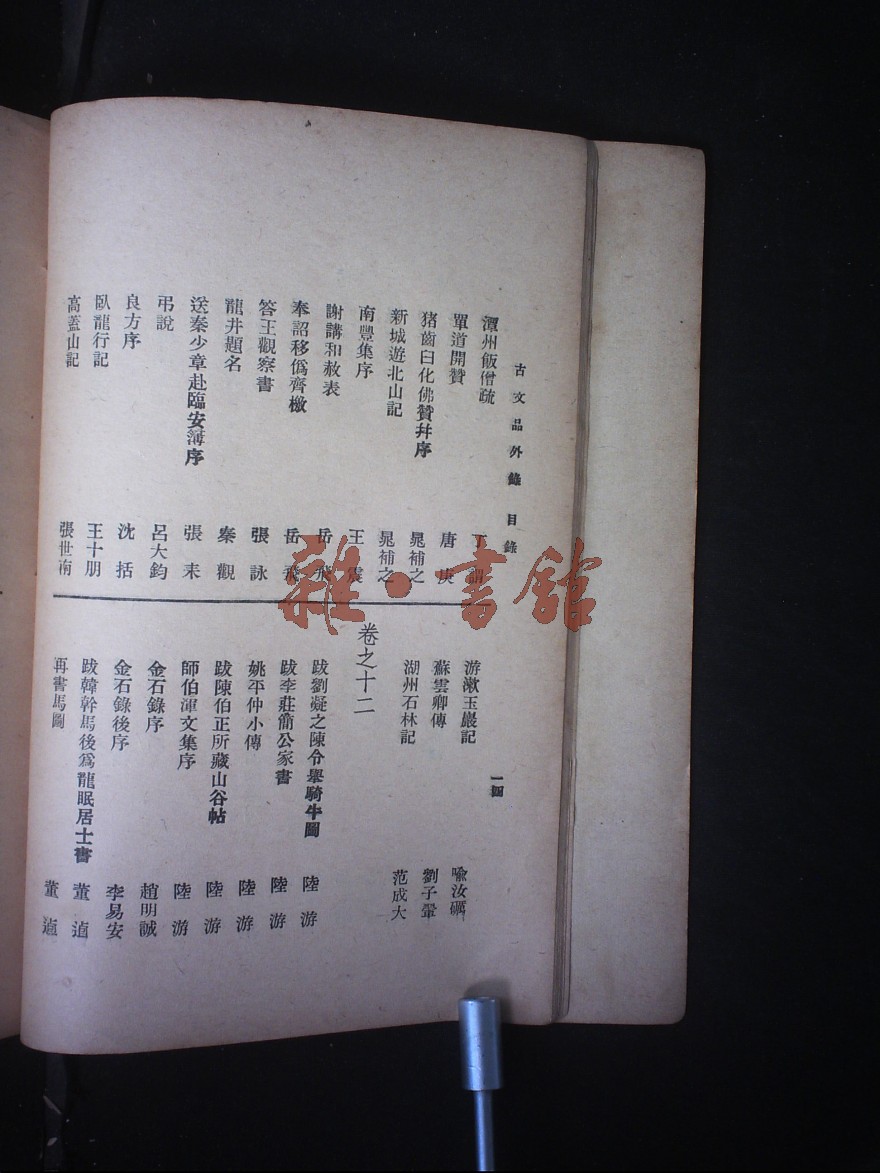 古文品外錄 目錄
一四
潭州飯僧疏 丁謂
單道開贊 唐庚
猪齒臼化佛贊幷序 晁補之
新城遊北山記 晁補之
南豐集序 王震
謝講和赦表 岳飛
奉詔移僞齊檄 岳飛
答王觀察書 張詠
龍井題名 秦觀
送秦少章赴臨安簿序 張耒
弔說 呂大鈞
良方序 沈括
臥龍行記 王十朋
高蓋山記 張世南
游漱玉巖記 喩汝礪
蘇雲卿傳 劉子翬
湖州石林記 范成大
卷之十二
跋劉凝之陳令舉騎牛圖 陸游
跋李莊簡公家書 陸游
姚平仲小傳 陸游
跋陳伯正所藏山谷帖 陸游
師伯渾文集序 陸游
金石錄序 趙明誠
金石錄後序 李易安
跋韓幹馬後爲龍眠居士書 董逌
再書馬圖 董逌
雜·書館